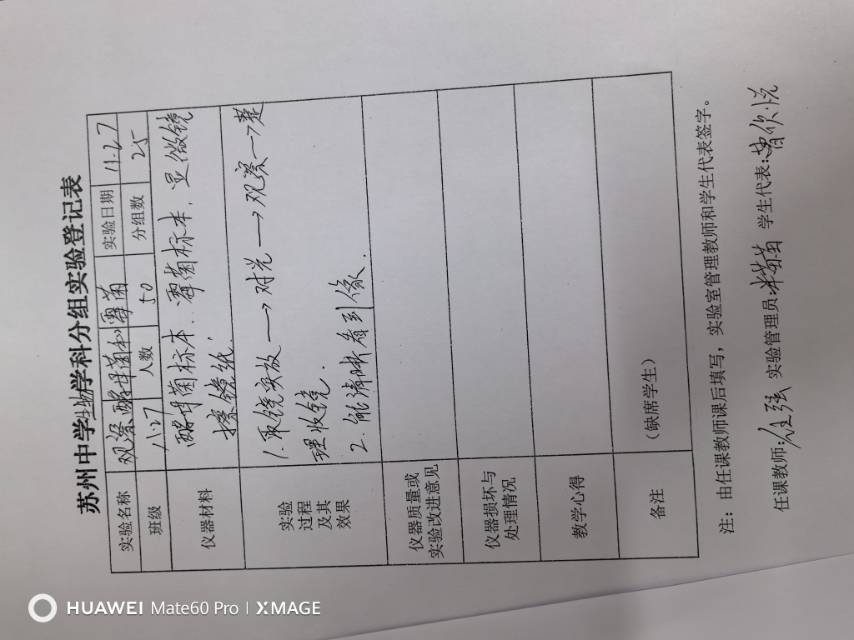 苏州中学生物学科分组实验登记表
实验名称 观察酵母菌和霉菌 实验日期 11.27
班级 八.27 人数 50 分组数 25
仪器材料 酵母菌标本、霉菌标本、显微镜
擦镜纸.
实验
过程
及其
效果
1.取镜安放→对光→观察→整
理收镜.
2.能清晰看到像.
仪器质量或
实验改进意见
仪器损坏与
处理情况
教学心得
备注 (缺席学生)
注：由任课教师课后填写，实验室管理教师和学生代表签字。
任课教师: 实验管理员: 学生代表:
HUAWEI Mate60 Pro | XMAGE